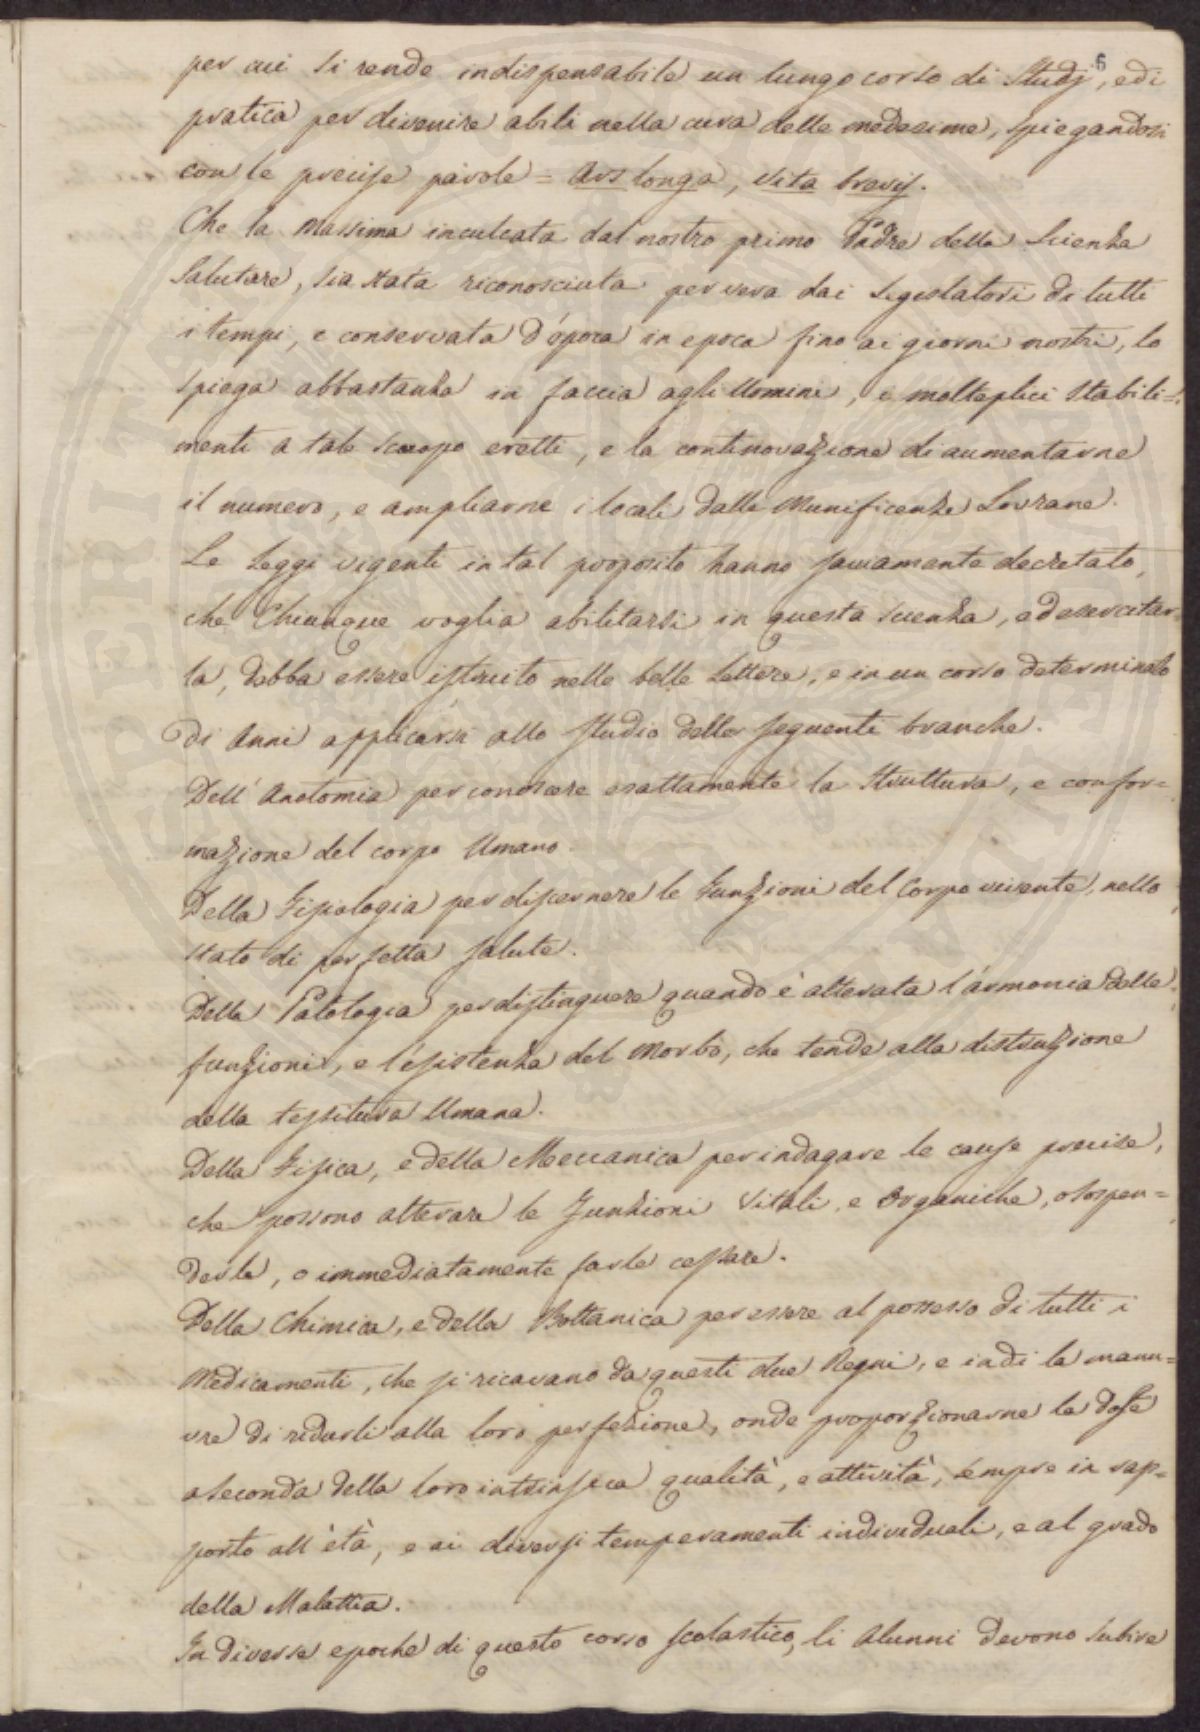 6
per cui si rende indispensabile un lungo corso di Studj, e di
pratica per divenire abili nella cura delle medesime, spiegandosi
con le precise parole = Ars longa, Vita brevis.
Che la Massima inculcata dal nostro primo Padre della Scienza
Salutare, sia stata riconosciuta per vera dai Legislatori di tutti
i tempi, e conservata d'época in epoca fino ai giorni nostri, lo
spiega abbastanza in faccia agli Uomini, i molteplici Stabili=
menti a tale scuopo eretti, e la continovazione di aumentarne
il numero, e ampliarne i locali dalle Munificenze Sovrane.
Le Leggi vigenti in tal proposito hanno saviamente decretato,
che Chiunque voglia abilitarsi in questa scienza, ed esercitar=
la, debba essere istruito nelle belle Lettere, e in un corso determinato
di Anni applicarsi allo studio delle seguenti branche.
Dell' Anatomia per conoscere esattamente la Struttura, e confor=
mazione del corpo Umano.
Della Fisiologia per discernere le Funzioni del Corpo vivente, nello
stato di perfetta salute.
Della Patologia per distinguere quando è alterata l'armonia delle
funzioni, e l'esistenza del Morbo, che tende alla distruzione
della tessitura Umana.
Della Fisica, e della Meccanica per indagare le cause precise,
che possono alterare le Funzioni Vitali, e Organiche, o sospen=
derle, o immediatamente farle cessare.
Della Chimica, e della Bottanica per essere al possesso di tutti i
Medicamenti, che si ricavano da questi due Regni, e indi la manu=
vre di ridurli alla loro perfezione, onde proporzionarne la dose
a seconda della loro intrinseca qualità, e attività, sempre in rap=
porto all'età, e ai diversi temperamenti individuali, e al grado
della Malattia.
In diverse epoche di questo corso scolastico, li Alunni devono subire
SPERITIA